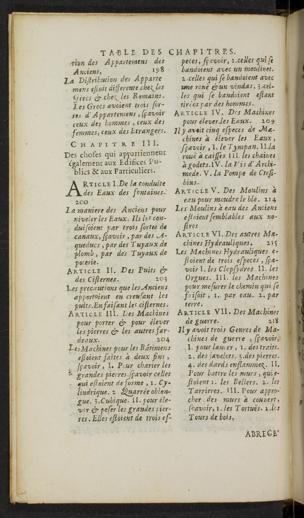 TABLE DES CHAPITRES.
tion des Appartemens des
Anciens, 198
La Distribution des Apparte
mens estoit differente chez les
Grecs & chez les Romains.
Les Grecs avoient trois sor-
tes d'Appartemens, sçavoir
ceux des hommes, ceux des
femmes, ceux des Estrangers.
CHAPITRE III.
Des choses qui appartiennent
également aux Edifices Pu-
blics & aux Particuliers.
ARTICLE I. De la conduite
des Eaux des fontaines.
200
La maniere des Anciens pour
niveler les Eaux. Ils les con-
duisoient par trois sortes de
canaux, sçavoir, par des A-
queducs, par des Tuyaux de
plomb, par des Tuyaux de
poterie.
ARTICLE II. Des Puits &
des Cisternes. 203
Les precautions que les Anciens
apportoient en creusant les
puits. En faisant les cisternes.
ARTICLE III. Des Machines
pour porter & pour élever
les pierres & les autres far-
deaux. 204
Les Machines pour les Bâtimens
estoient faites à deux fins,
sçavoir, I. Pour charier les
grandes pierres sçavoir celles
qui estoient de forme, 1. Cy-
lindrique. 2 Quarrée oblon-
gue. 3. Cubique. II. pour éle-
ver & poser les grandes pier-
res. Elles estoient de trois es-
peces, sçavoir, 1. celles qui se
bandoient avec un moulinet.
2. celles qui se bandoient avec
une rouë & un vindas, 3. cel-
les qui se bandoient estant
tirées par des hommes.
ARTICLE IV. Des Machines
pour élever les Eaux. 209
Il y avoit cinq especes de Ma-
chines à élever les Eaux,
sçavoir, I. le Tympan. II. la
rouë à caisses III. les chaînes
à godets. IV. la Vis d'Archi-
mede. V. la Pompe de Cresi-
bius.
ARTICLE V. Des Moulins à
eau pour moudre le blé. 214
Les Moulins à eau des Anciens
estoient semblables aux no-
stres
ARTICLE VI. Des autres Ma-
chines Hydrauliques. 215
Les Machines Hydrauliques e-
stoient de trois especes, sça-
voir I. les Clepsidres. II. les
Orgues. III. les Machines
pour mesurer le chemin qui se
faisoit, 1. par eau. 2. par
terre.
ARTICLE VII. Des Machines
de guerre. 218
Il y avoit trois Genres de Ma-
chines de guerre, sçavoir
I. pour lancer, 1. des traits.
2. des javelots, 3. des pierres.
4. des dards enflammez. II.
Pour battre les murs, qui e-
stoient 1. les Beliers. 2. les
Tarrieres. III. Pour appro-
cher des murs à couvert,
sçavoir, 1. les Tortuës. 2. les
Tours de bois.
ABREGE'